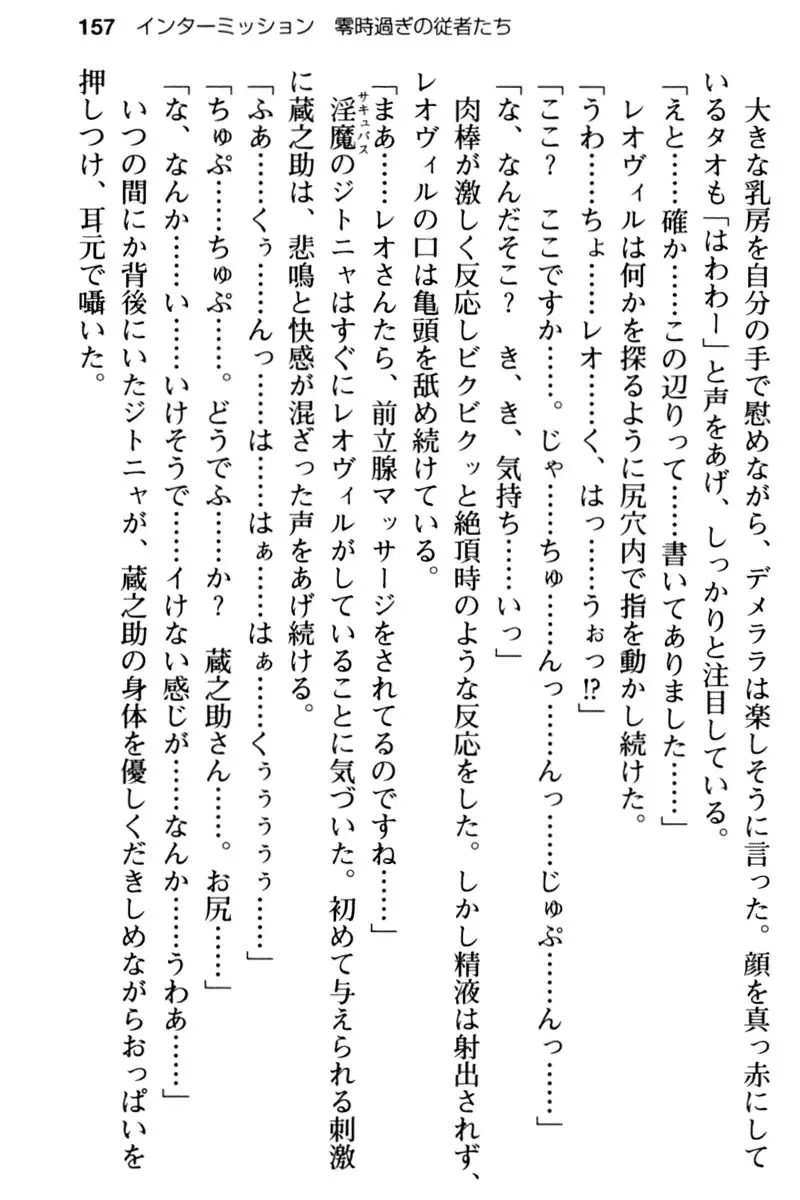 157 インターミッション 零時過ぎの従者たち
大きな乳房を自分の手で慰めながら、デメララは楽しそうに言った。顔を真っ赤にして
いるタオも「はわわー」と声をあげ、しっかりと注目している。
「えと……確か……この辺りって……書いてありました……」
レオヴィルは何かを探るように尻穴内で指を動かし続けた。
「うわ……ちょ……レオ……く、はっ……うぉっ!?」
「ここ？ ここですか……。じゃ……ちゅ……んっ……んっ……じゅぷ……んっ……」
「な、なんだそこ？ き、き、気持ち……いっ」
肉棒が激しく反応しビクビクッと絶頂時のような反応をした。しかし精液は射出されず、
レオヴィルの口は亀頭を舐め続けている。
「まあ……レオさんたら、前立腺マッサージをされてるのですね……」
淫魔サキュバスのジトニャはすぐにレオヴィルがしていることに気づいた。初めて与えられる刺激
に蔵之助は、悲鳴と快感が混ざった声をあげ続ける。
「ふあ……くぅ……んっ……は……はぁ……はぁ……くぅぅぅぅぅ……」
「ちゅぷ……ちゅぷ……。どうでふ……か？ 蔵之助さん……。お尻……」
「な、なんか……い……いけそうで……イけない感じが……なんか……うわあ……」
いつの間にか背後にいたジトニャが、蔵之助の身体を優しくだきしめながらおっぱいを
押しつけ、耳元で囁いた。